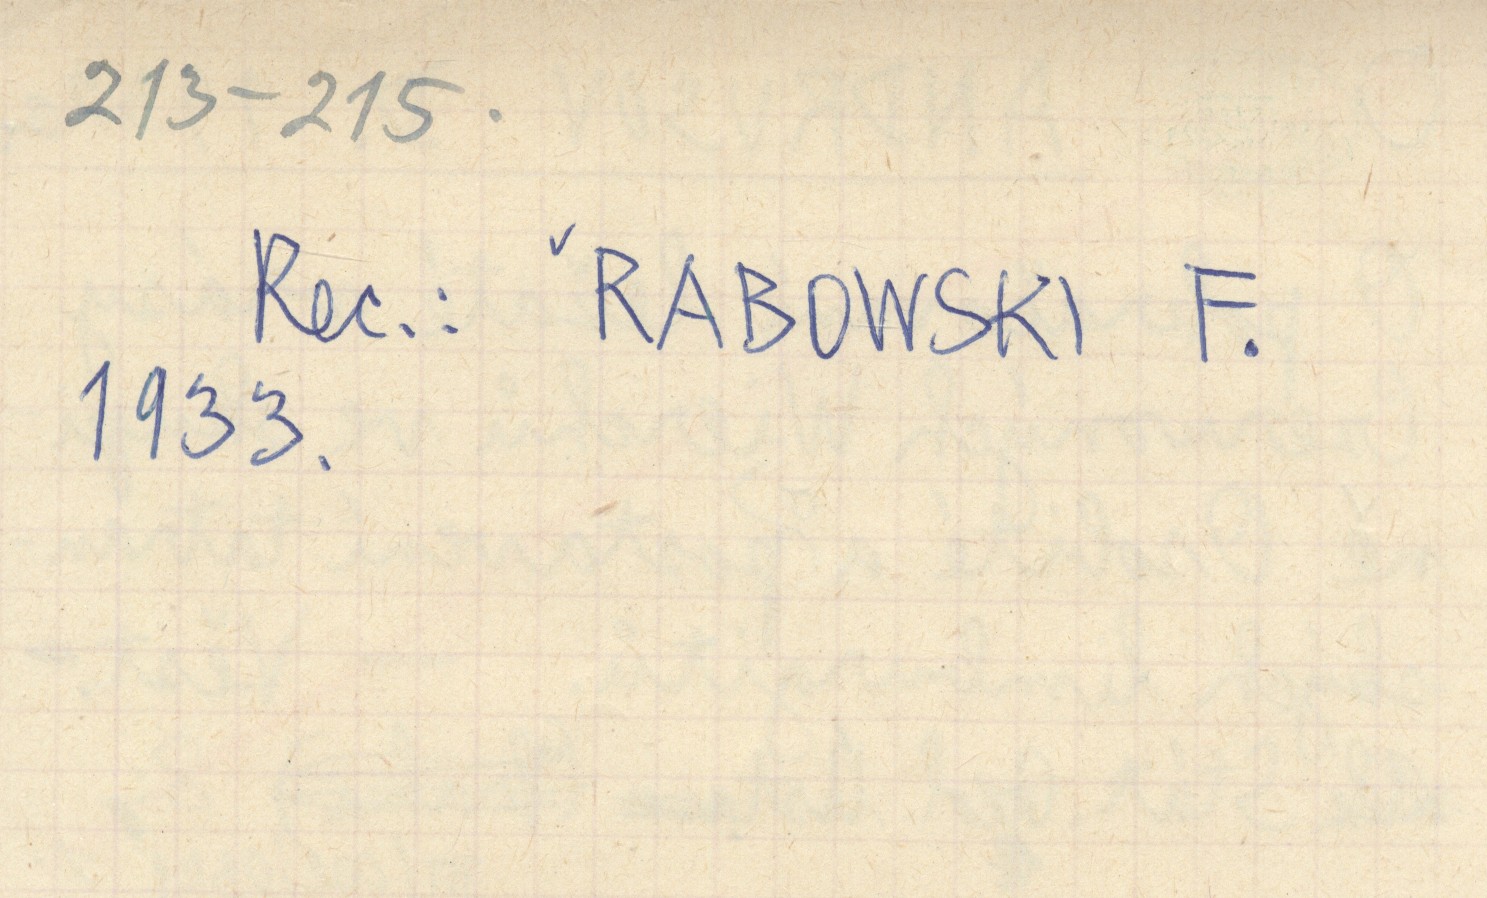 213-215.
Rec.: ˇRABOWSKI F.
1933.